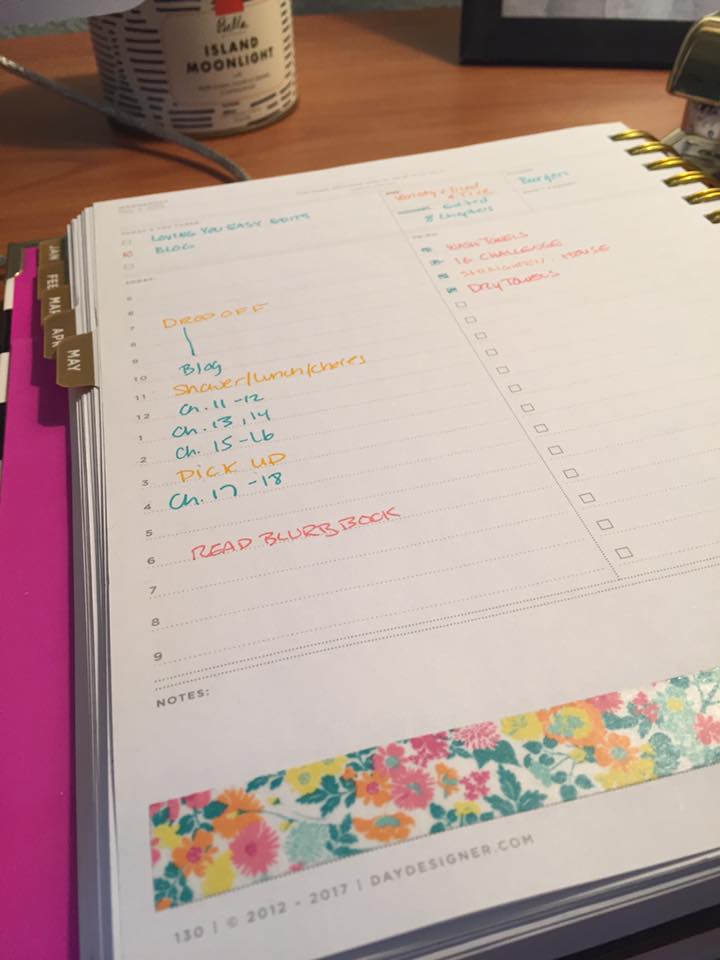 ISLAND
MOONLIGHT
LOVING YOU EASY EDITS
BLOG
TODAY
Edited
8 Chapters
Burgers
WASH TOWELS
16 CHALLENGE
HOUSE
DRY TOWELS
5
6
7 DROP OFF
8
9
10 Blog
11 Shower/Lunch/chores
12 Ch. 11-12
1 Ch. 13, 14
2 Ch. 15-16
3 PICK UP
4 Ch. 17-18
5
6 READ BLURB BOOK
7
8
9
NOTES:
130 | © 2012 - 2017 | DAYDESIGNER.COM
JAN
FEB
MAR
APR
MAY